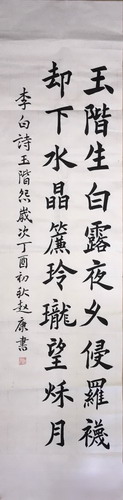 玉階生白露夜久侵羅襪
却下水晶簾玲瓏望秌月
李白詩玉階怨歲次丁酉初秋趙康書